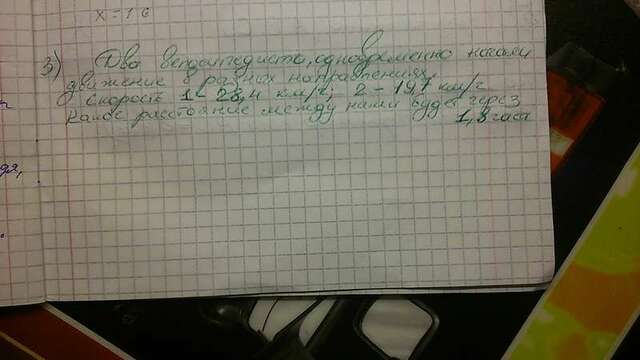 x = 16
3) Два велосипедиста, одновременно начали
движение в разных направлениях
скорость 1 28,4 км/ч, 2 - 19,7 км/ч
Какое расстояние между ними будет через
1,8 часа